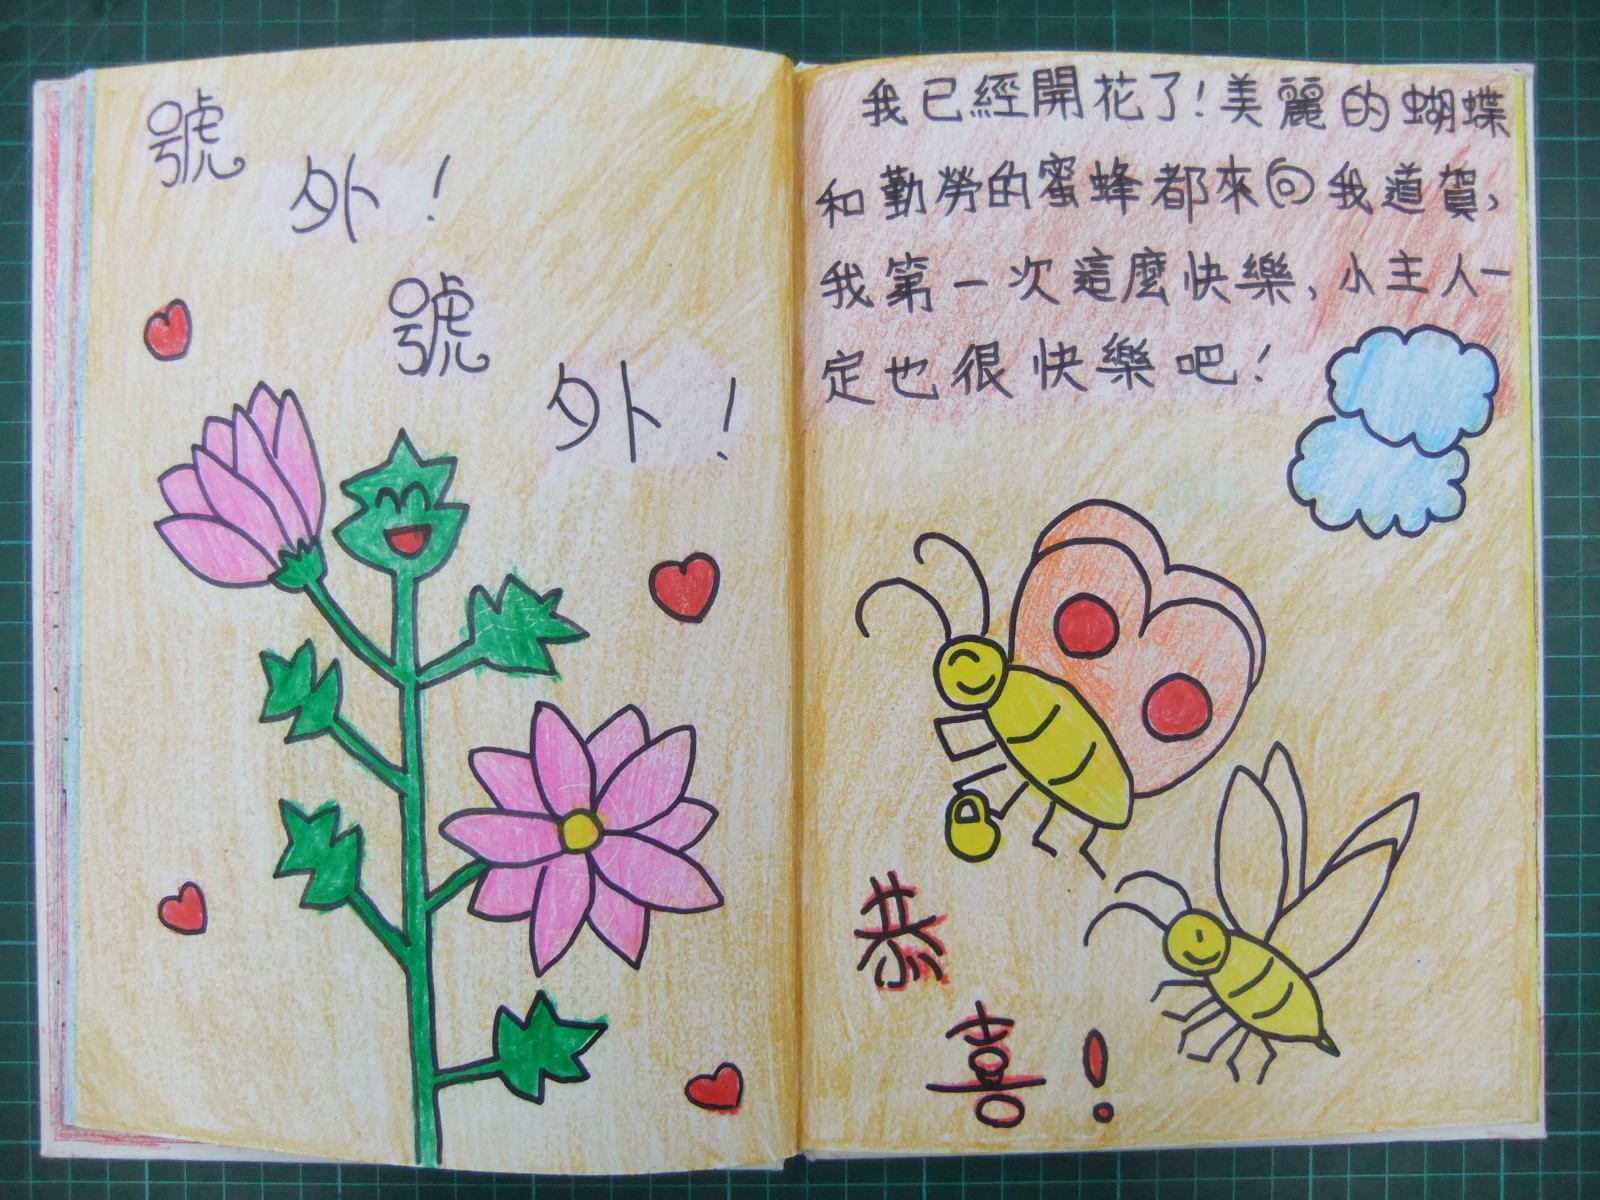 號
外！
號
外！
我已經開花了！美麗的蝴蝶
和勤勞的蜜蜂都來向我道賀，
我第一次這麼快樂，小主人一
定也很快樂吧！
恭
喜！